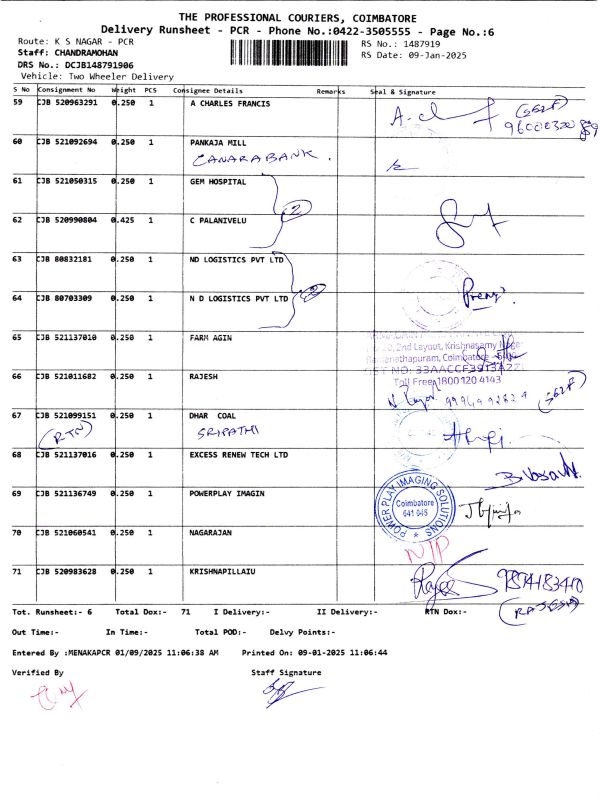 THE PROFESSIONAL COURIERS, COIMBATORE
Delivery Runsheet - PCR - Phone No.:0422-3505555 - Page No.:6
Route: K S NAGAR - PCR
RS No.: 1487919
Staff: CHANDRAMOHAN
RS Date: 09-Jan-2025
DRS No.: DCJB148791906
Vehicle: Two Wheeler Delivery
S No Consignment No Weight PCS Consignee Details Remarks Seal & Signature
59 CJB 520963291 0.250 1 A CHARLES FRANCIS
(SELF)
60 CJB 521092694 0.250 1 PANKAJA MILL
CANARA BANK.
61 CJB 521050315 0.250 1 GEM HOSPITAL
2
62 CJB 520990804 0.425 1 C PALANIVELU
63 CJB 80832181 0.250 1 ND LOGISTICS PVT LTD
64 CJB 80703309 0.250 1 N D LOGISTICS PVT LTD
65 CJB 521137010 0.250 1 FARM AGIN
2nd Layout, Krishnasamy
Ramanathapuram, Coimbatore
GST NO: 33AACCF3913A2Z
Toll Free 1800 120 4143
66 CJB 521011682 0.250 1 RAJESH
(SELF)
67 CJB 521099151 0.250 1 DHAR COAL
(RTN) SRIPATHI
68 CJB 521137016 0.250 1 EXCESS RENEW TECH LTD
69 CJB 521136749 0.250 1 POWERPLAY IMAGIN
POWER PLAY IMAGING SOLUTIONS
Coimbatore
641 045
70 CJB 521060541 0.250 1 NAGARAJAN
N/P
71 CJB 520983628 0.250 1 KRISHNAPILLAIU
Tot. Runsheet:- 6 Total Dox:- 71 I Delivery:- II Delivery:- RTN Dox:-
Out Time:- In Time:- Total POD:- Delvy Points:-
Entered By :MENAKAPCR 01/09/2025 11:06:38 AM Printed On: 09-01-2025 11:06:44
Verified By Staff Signature